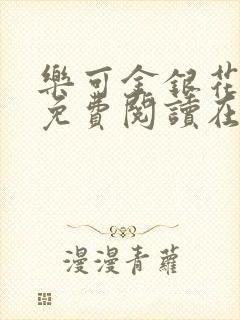 樂可金銀花
免費閱讀在
漫漫青蘿